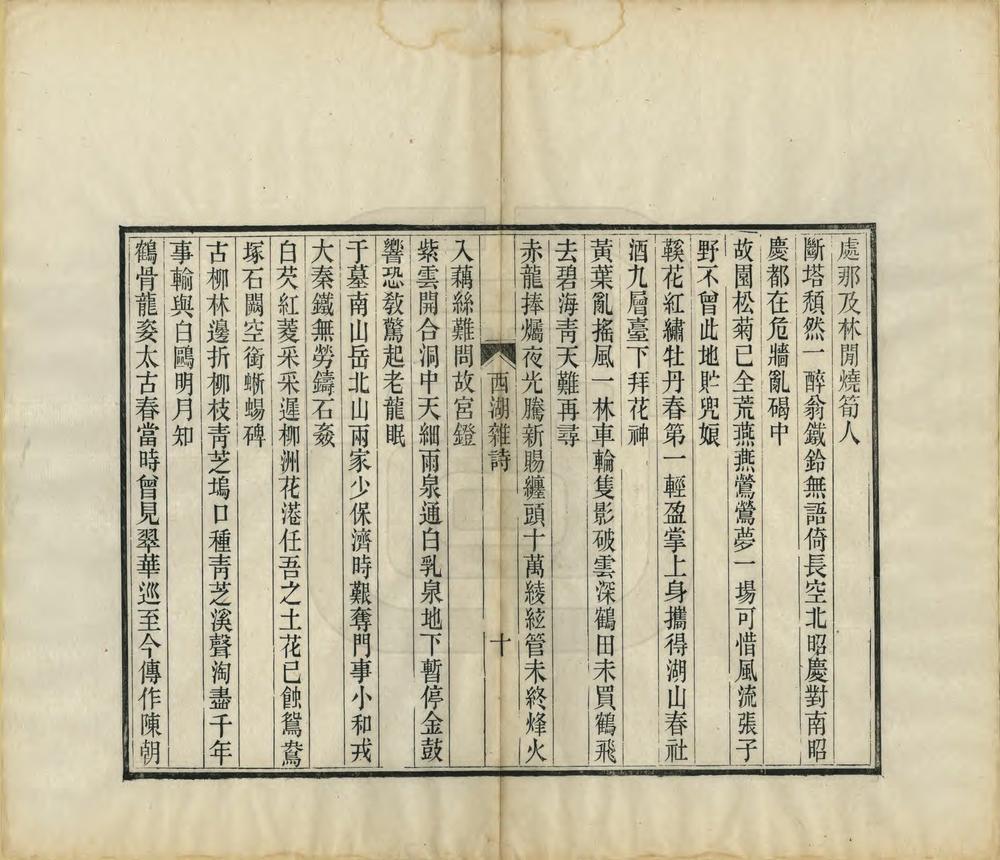 處那及林閒燒筍人
斷塔頹然一醉翁鐵鈴無語倚長空北昭慶對南昭
慶都在危牆亂碣中
故園松菊已全荒燕燕鶯鶯夢一場可惜風流張子
野不曾此地貯兜娘
鞵花紅繡牡丹春第一輕盈掌上身攜得湖山春社
酒九層臺下拜花神
黃葉亂搖風一林車輪隻影破雲深鶴田未買鶴飛
去碧海靑天難再尋
赤龍捧爥夜光騰新賜纏頭十萬綾絃管未終烽火
西湖雜詩
十
入藕絲難問故宮鐙
紫雲開合洞中天細雨泉通白乳泉地下暫停金鼓
響恐敎驚起老龍眠
于墓南山岳北山兩家少保濟時艱奪門事小和戎
大秦鐵無勞鑄石姦
白芡紅菱采采遲柳洲花港任吾之土花已蝕鴛鴦
塚石闕空銜蜥蜴碑
古柳林邊折柳枝靑芝塢口種靑芝溪聲淘盡千年
事輸與白鷗明月知
鶴骨龍姿太古春當時曾見翠華巡至今傳作陳朝